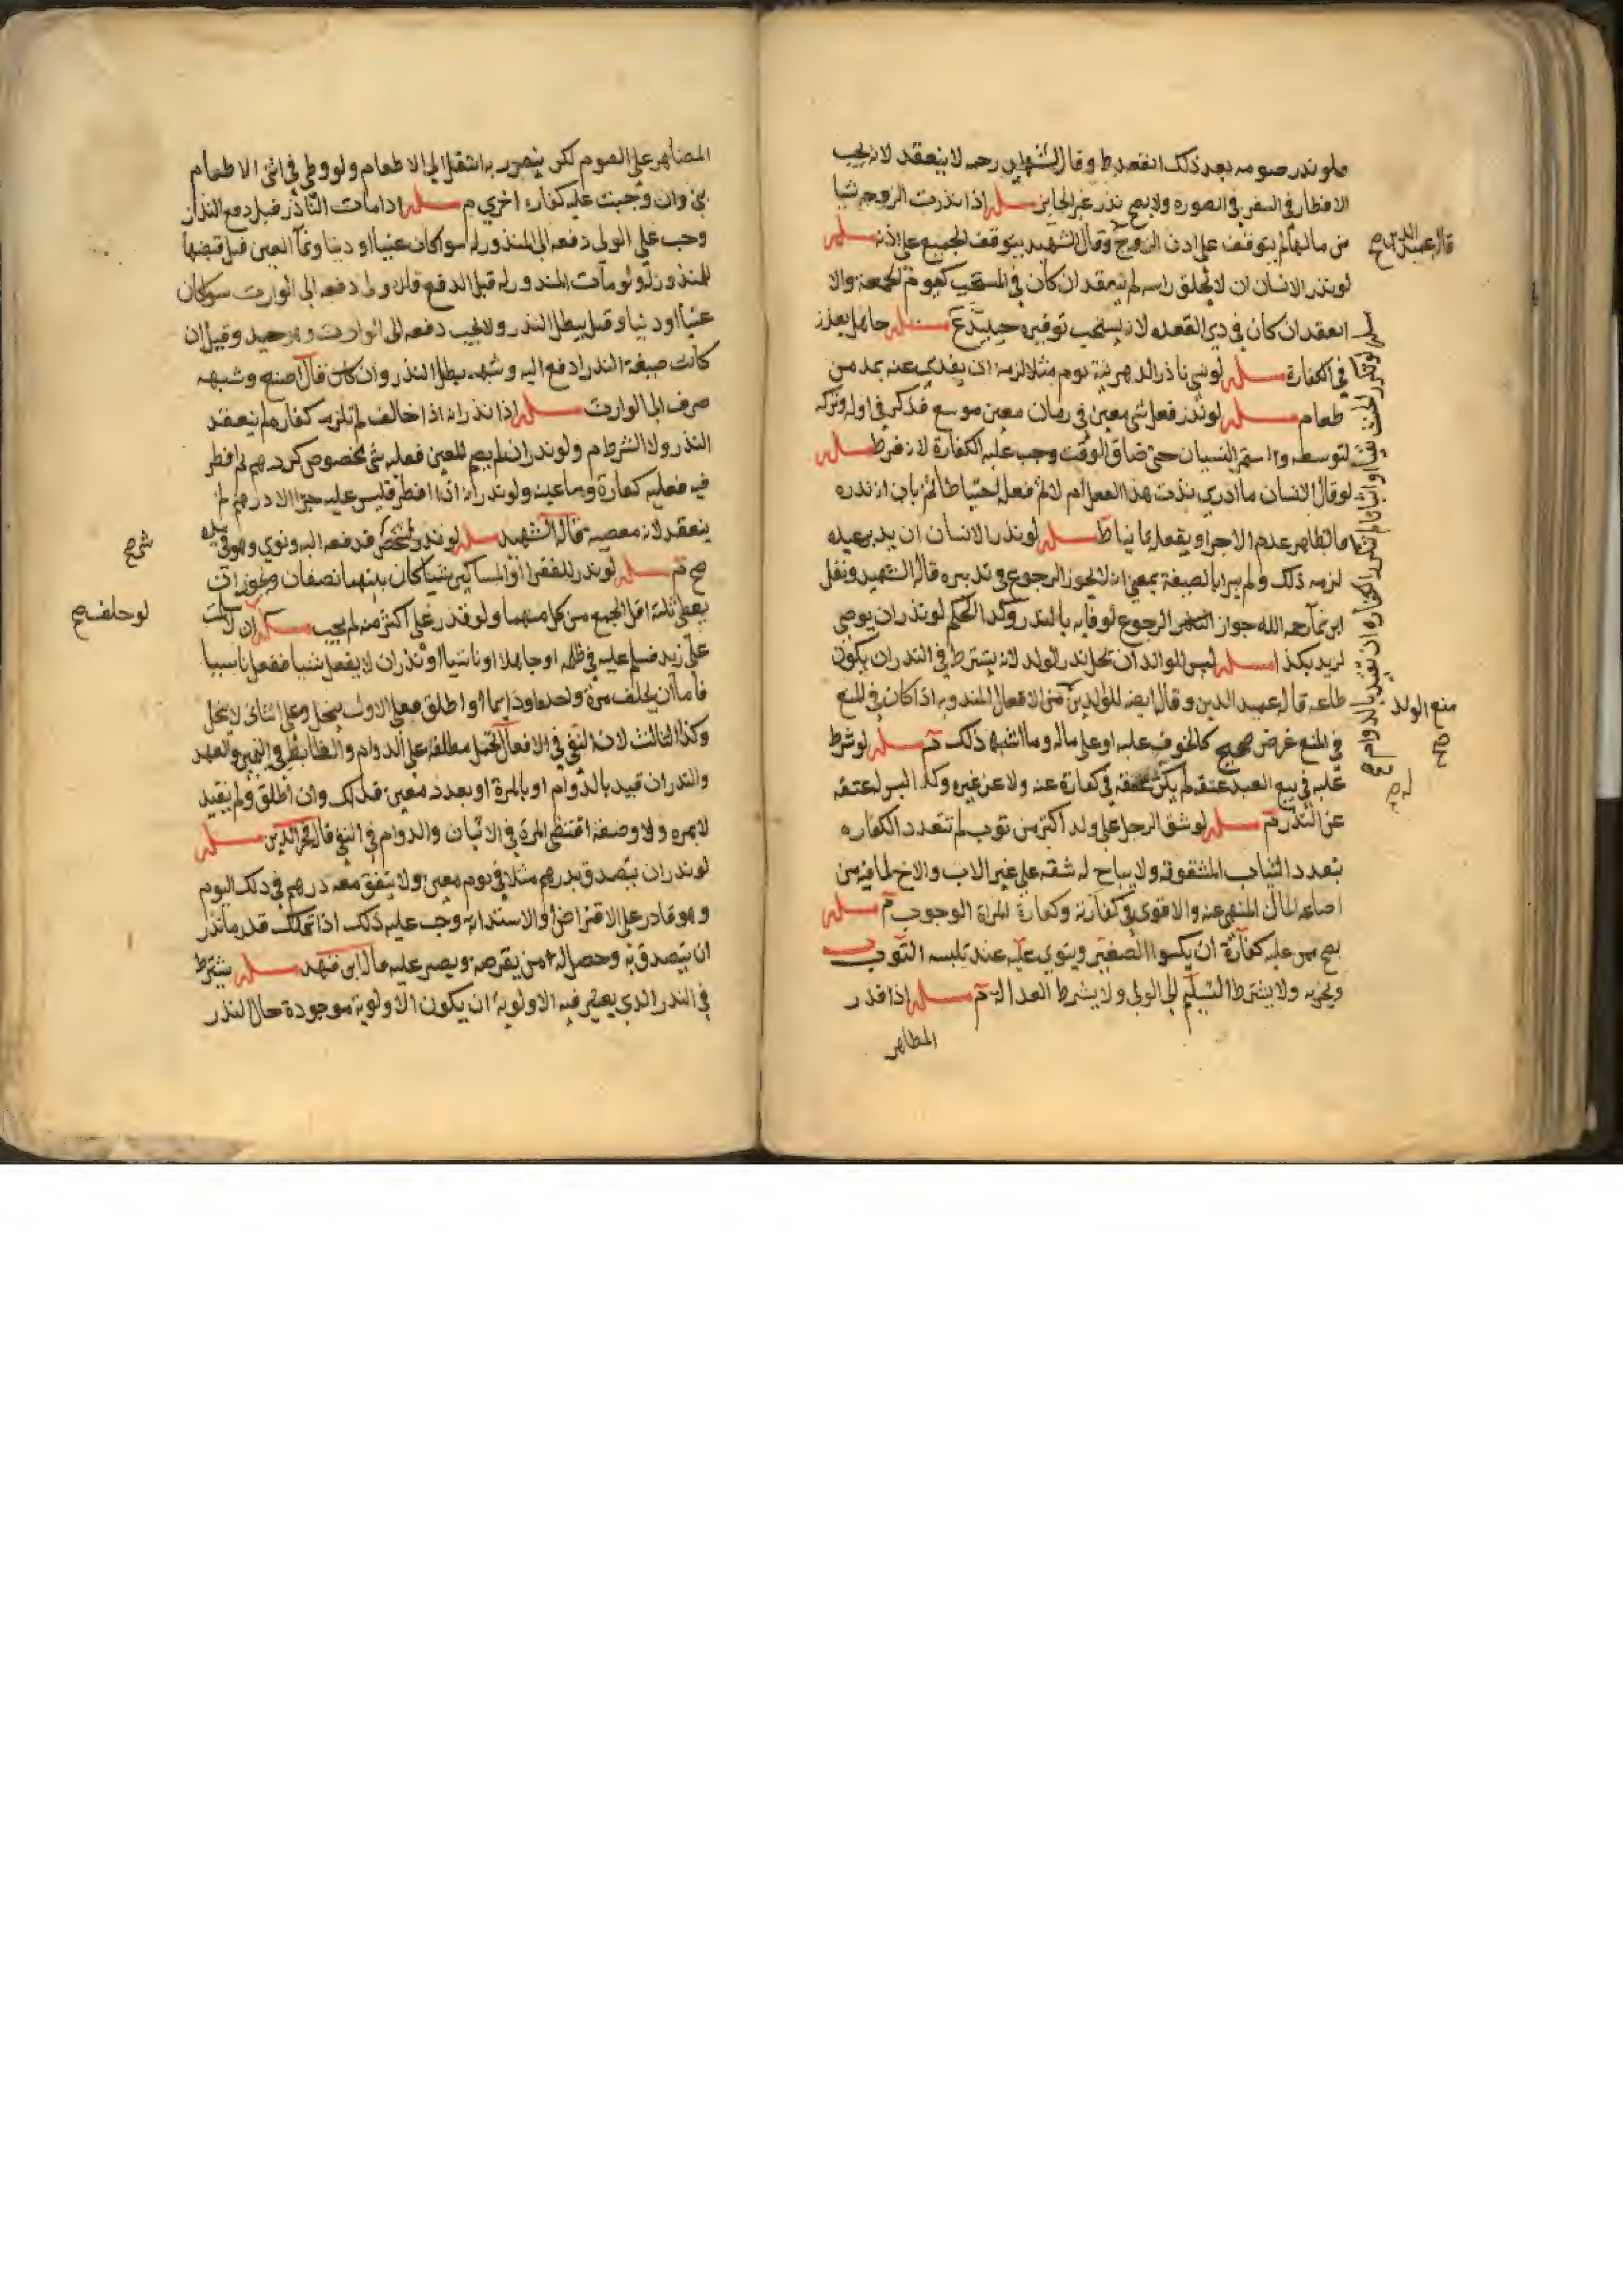 ولو نذر صومه بعد ذلك انعقد ط وقال الشهيد رحمه لا ينعقد لانه يجب
الافطار في السفر في الصوره ولا يصح نذر غير الجايز مسله اذا نذرت الزوجه شيا
من مالها لم يتوقف على اذن الزوج وقال الشهيد يتوقف الجميع على اذنه مسله
لو نذر الانسان ان لا يحلق راسه لم ينعقد ان كان في المستحب كيوم الجمعة والا
انعقد ان كان في ذي القعده لانه يستحب توفيره مسله جاهل يعذر
في الكفارة مسله لو نسي ناذر الدهر يوم مثلا لزمه ان يفدي عنه بمد من
طعام مسله لو نذر فعل شي معين في زمان معين موسع فذكر في اوله وتركه
لتوسطه واستمر النسيان حتى ضاق الوقت وجب عليه الكفارة لانه فرط مسله
لو قال الانسان ما ادري نذرت هذا الفعل ام لا ثم فعله احتياطا ثم بان انه نذره
فالظاهر عدم الاجزا ويفعله ثانيا ط مسله لو نذر الانسان ان يدبر عبده
لزمه ذلك ولم يبرا بالصيغة بمعنى انه لا يجوز الرجوع في تدبيره قاله الشهيد ونقل
ابن نما رحمه الله جواز الرجوع لوفايه بالنذر وكذا الحكم لو نذر ان يوصي
لزيد بكذا مسله ليس للوالد ان يحل نذر الولد لانه يشترط في النذر ان يكون
طاعه قاله عميد الدين وقال ايضه للوالدين من الافعال المندوبه اذا كان في المنع
في المنع غرض صحيح كالخوف عليه او على ماله وما اشبه ذلك تم مسله لو شرط
عليه في بيع العبد عتقه لم يكن عتقه في كفارة عنه ولا عن غيره وكذا ليس له عتقه
عن النذر تم مسله لو شق الرجل على ولد اكثر من ثوب لم تتعدد الكفاره
بتعدد الثياب المشقوقه ولا يباح له شقه على غير الاب والاخ لما فيه من
اضاعه المال المنهي عنه والاقوى وكفارة المراة الوجوب تم مسله
يصح ممن عليه كفارة ان يكسوا الصغير وينوي عليه عند تلبسه الثوب
ويجزيه ولا يشترط التسليم الى الولى ولا يشرط العداله تم مسله اذا قدر
المظاهر
قال عميد الدين صح
منع الولد
صح
المضاهر على الصوم لكن يتضرر به انتقل الى الاطعام ولو وطي في اثنا الاطعام
بني وان وجبت عليه كفاره اخري م مسله اذا مات الناذر قبل دفع النذر
وجب على الولي دفعه الى المنذور له سوا كان عينا او دينا ونما العين قبل قبضها
للمنذور له ولو مات المنذور له قبل الدفع دفعه الى الوارث سوا كان
عينا او دينا وقيل يبطل النذر ولا يجب دفعه الى الوارث وهو جيد وقيل ان
كانت صيغة النذر ادفع اليه وشبهه بطل النذر وان كان قال اصنع وشبهه
صرف الى الوارث مسله اذا نذر انه اذا خالف لم تلزمه كفاره لم ينعقد
النذر ولا الشرط م ولو نذر ان لم يصم المعين فعليه شي بخصوص كدرهم ثم افطر
فيه فعليه كفارة وما عينه ولو نذر انه اذا افطر فليس عليه جزا الا درهم لم
ينعقد لانه معصية قاله الشهيد مسله لو نذر لشخص فدفعه اليه ونوي وهو في يده
صح تم مسله لو نذر للفقرا او المساكين شيا كان بينهما نصفان ويجوز ان
يعطي ثلثة اقل الجمع من كل منهما ولو قدر على اكثر منه لم يجب مسله ان سلمت
على زيد فسلم عليه في ظلمه او جاهلا او ناسيا او نذر ان لا يفعل شيا ففعل ناسيا
فاما ان يحلف مرة واحده او دايما او اطلق فعلى الاول ينحل وعلى الثاني لا ينحل
وكذا الثالث لان النفي في الافعال تحمل مطلقه على الدوام والضابط في اليمين والعهد
والنذر ان قيد بالدوام او بالمرة او بعدد معين فذلك وان اطلق ولم يقيد
لا بمره ولا وصفه اقتضى المرة في الاثبات والدوام في النفي قال فخر الدين مسله
لو نذر ان يتصدق بدرهم مثلا في يوم معين ولا يتفق معه درهم في ذلك اليوم
وهو قادر على الاقتراض او الاستدانه وجب عليه ذلك اذا تملك قدر ما نذر
ان يتصدق به وحصل له من يقرضه ويصبر عليه قال ابن فهد مسله يشترط
في النذر الذي يعتبر فيه الاولويه ان يكون الاولويه موجودة حال النذر
شرح
لو حلف صح